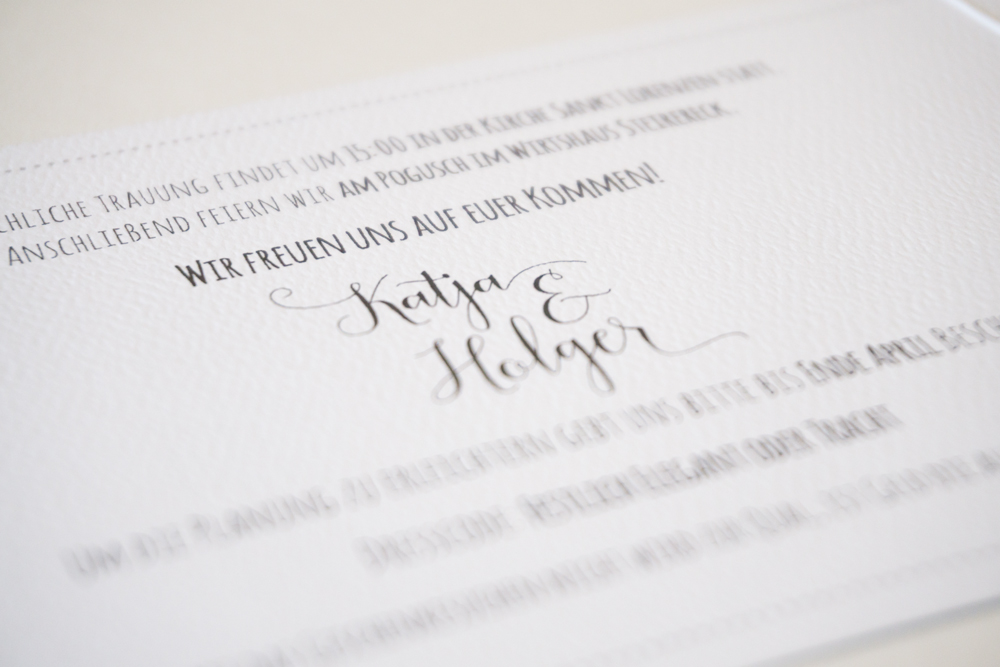 CHLICHE TRAUUNG FINDET UM 15:00 IN DER KIRCHE SANKT LORENZEN STATT.
ANSCHLIEßEND FEIERN WIR AM POGUSCH IM WIRTSHAUS STEIRERECK.
WIR FREUEN UNS AUF EUER KOMMEN!
Katja &
Holger
UM DIE PLANUNG ZU ERLEICHTERN GEBT UNS BITTE BIS ENDE APRIL BESCH
DRESSCODE: FESTLICH ELEGANT ODER TRACHT
WIRD ZUR QUAL, IST GELD DIE